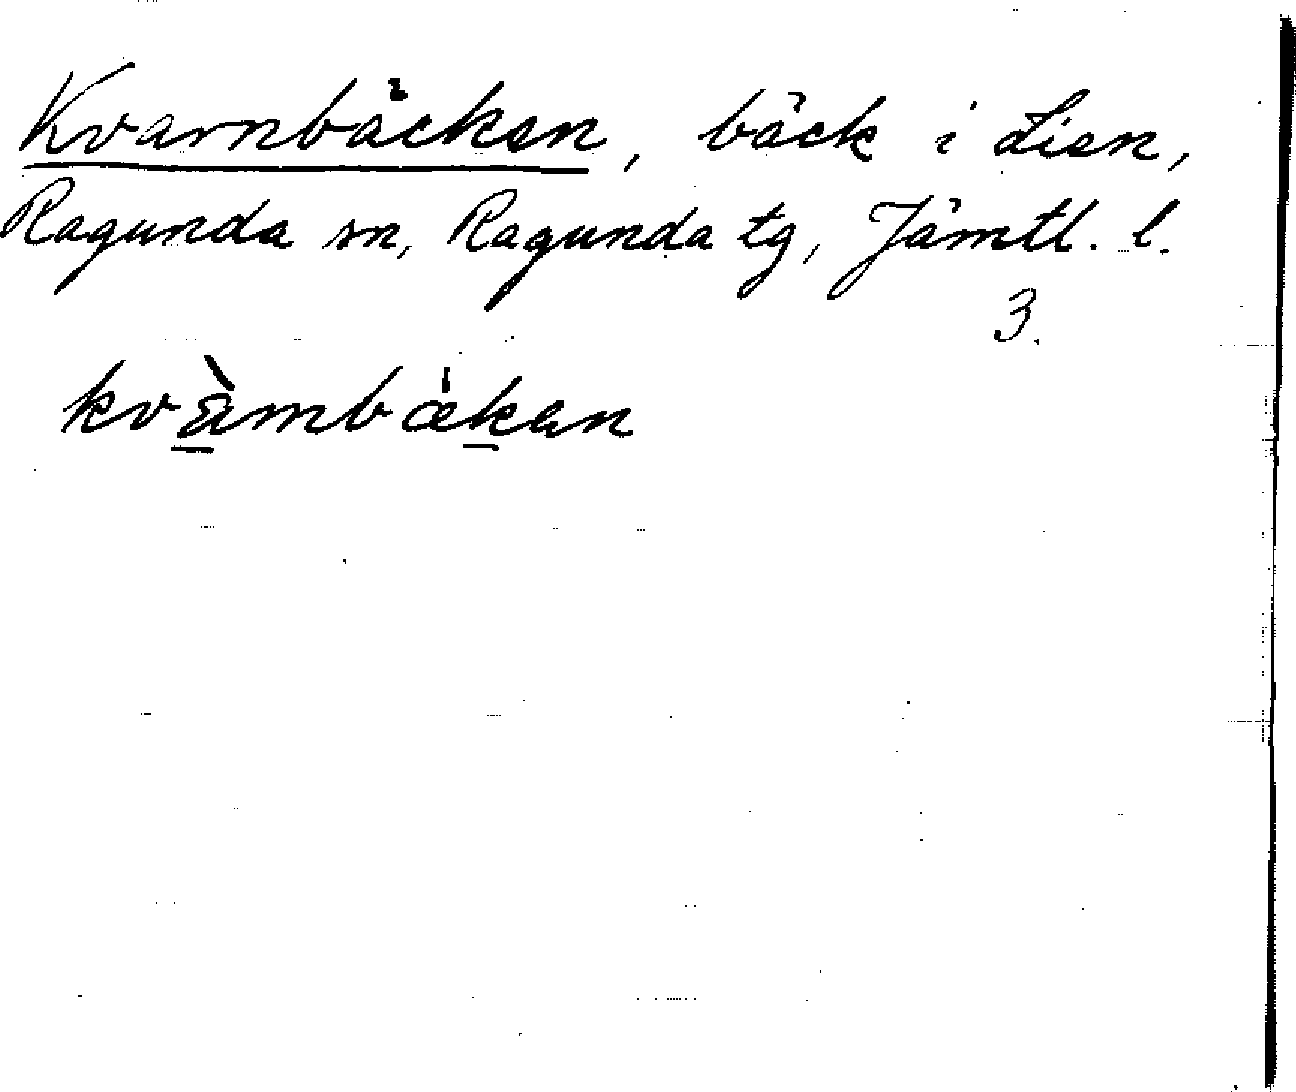 Kvarnbäcken, bäck i Lien,
Ragunda sn, Ragunda tg, Jämtl. l.
3.
kvàmbækan